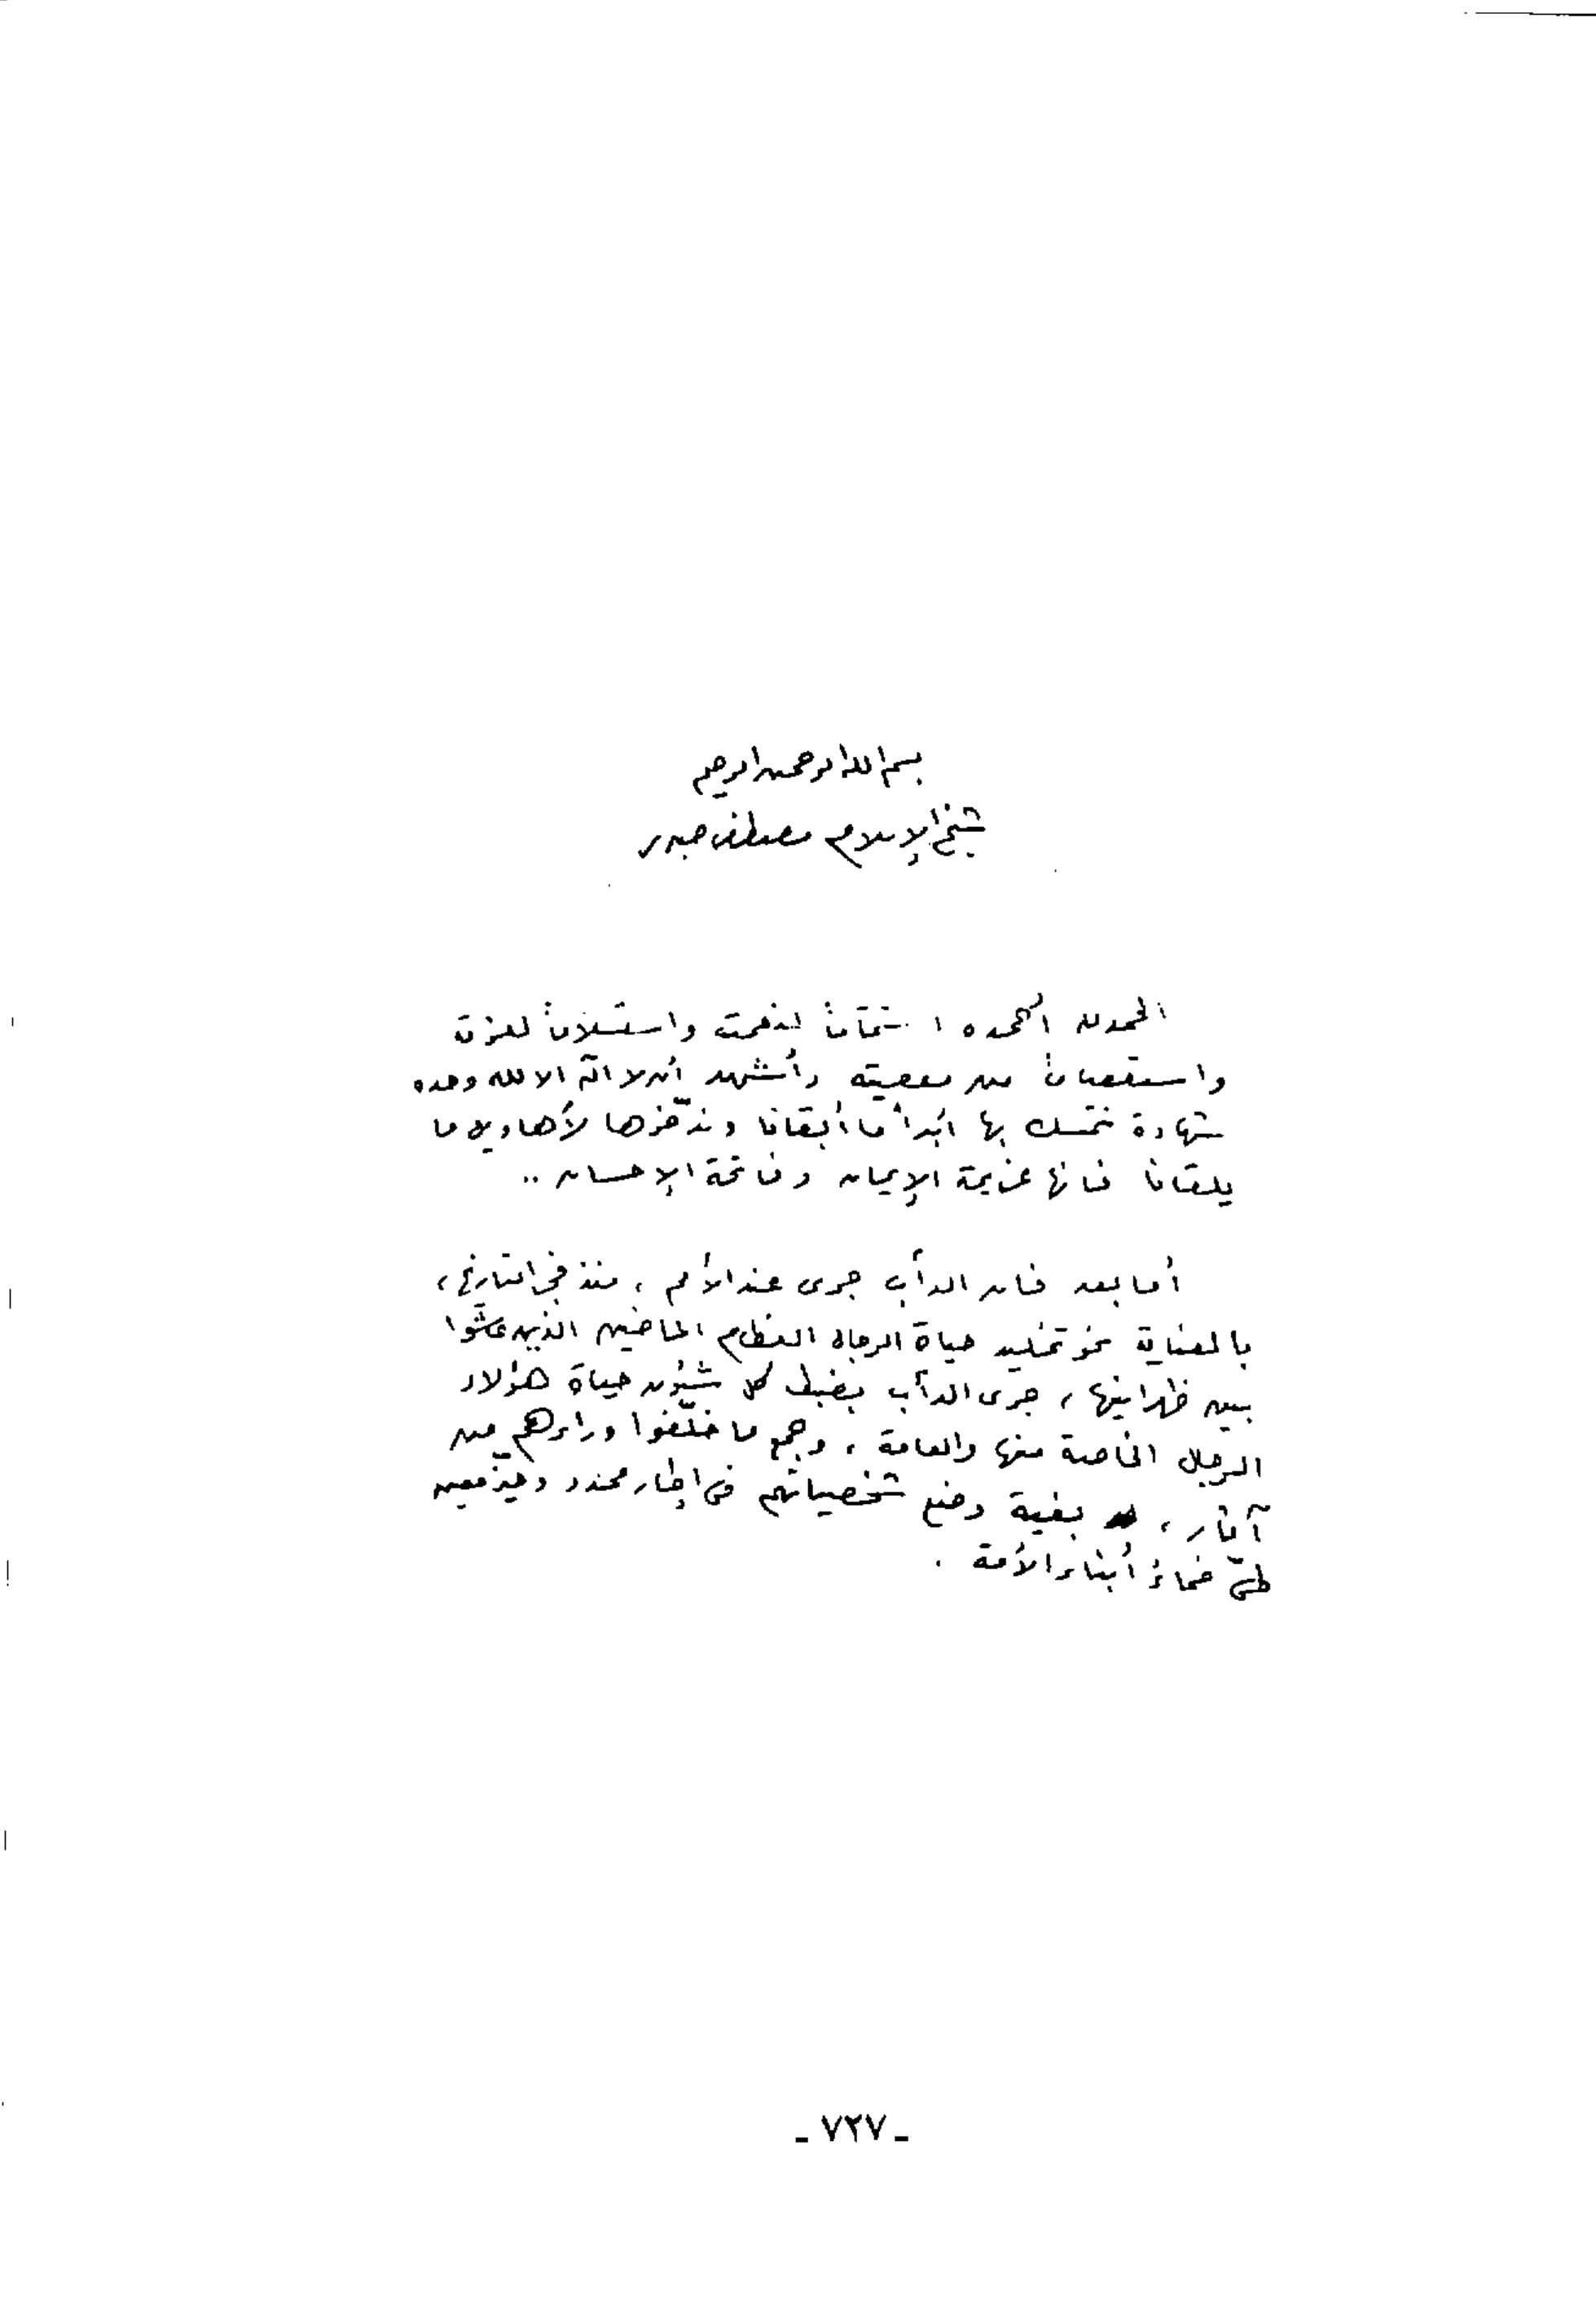 بسم الله الرحمن الرحيم
شيخ الإسلام مصطفى صبرى
الحمد لله أحمده استتماماً لنعمته واستسلاماً لعزته
واستعصاماً من معصيته وأشهد أن لا اله الا الله وحده
شهادة نتمسك بها أبداً ما أبقانا وندّخرها لأهاويل ما
يلقانا فانها عزيمة الإيمان وفاتحة الإحسان ..
أما بعد فان الدأب جرى عند الأمم ، منذ فجر التاريخ ،
بالعناية نحو تخليد حياة الرجال العظام الماضين الذين عاشوا
بين ظهرانيها ، جرى الدأب بضبط كل شئون حياة هؤلاء
الرجال الخاصة منها والعامة ، وجمع ما خلّفوا وراءهم من
آثار ، بغية وضع شخصياتهم فى إطار محدد وحيّز معين
طىّ ضمائر أبناء الأمة .
ـ ٧٢٧ ـ